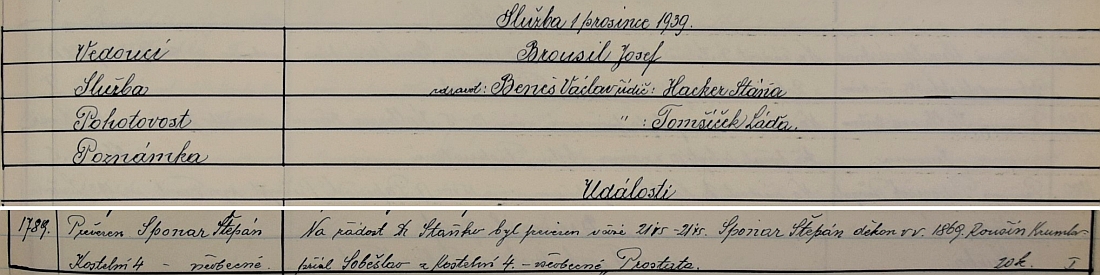 Služba 1 prosince 1939.
Vedoucí Brousil Josef
Služba zdravot: Beneš Václav řidič: Hacker Stáňa
Pohotovost " : Tomšíček Láďa.
Poznámka
Události
1789. Převezen Sponar Štěpán Na žádost Dr. Staňko byl převezen váné 2115 - 2115. Sponar Štěpán děkan v v. 1869. Krumlov
Kostelní 4 - všeobecné. Soběslav z Kostelní 4. - všobecné, Prostata. 20 k. I